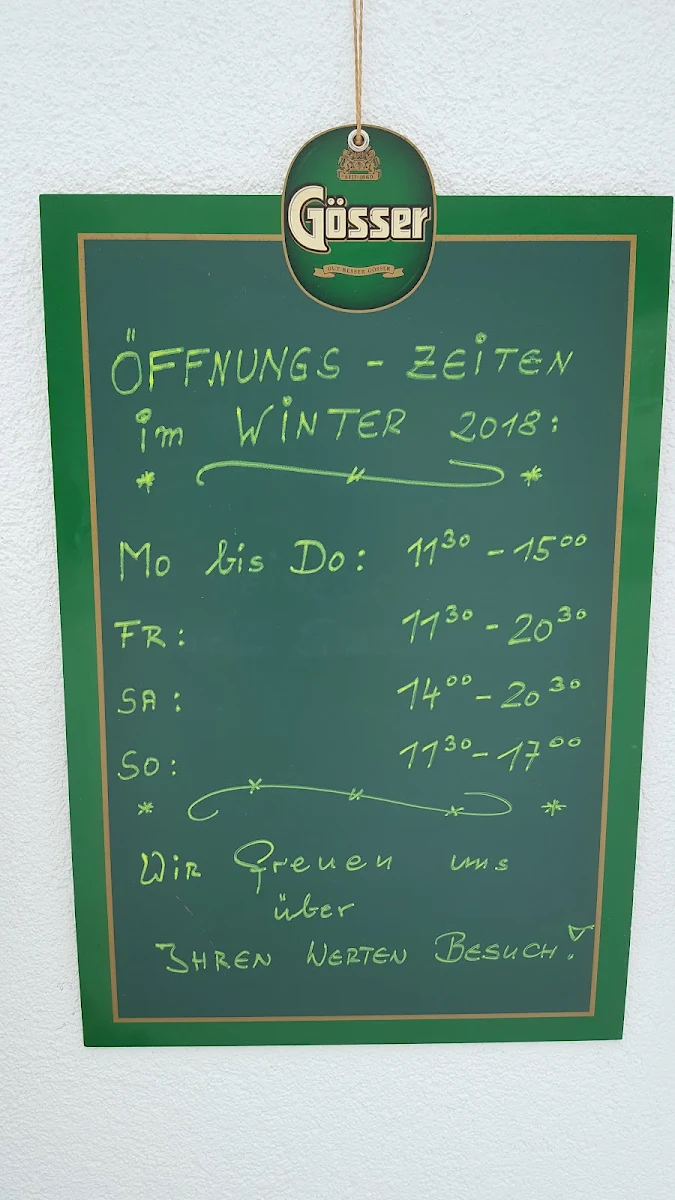 SEIT 1860
Gösser
GUT BESSER GÖSSER
ÖFFNUNGS - ZEITEN
im WINTER 2018:
Mo bis Do: 11³⁰ - 15⁰⁰
FR: 11³⁰ - 20³⁰
SA: 14⁰⁰ - 20³⁰
SO: 11³⁰ - 17⁰⁰
WIR freuen uns
über
IHREN WERTEN BESUCH!